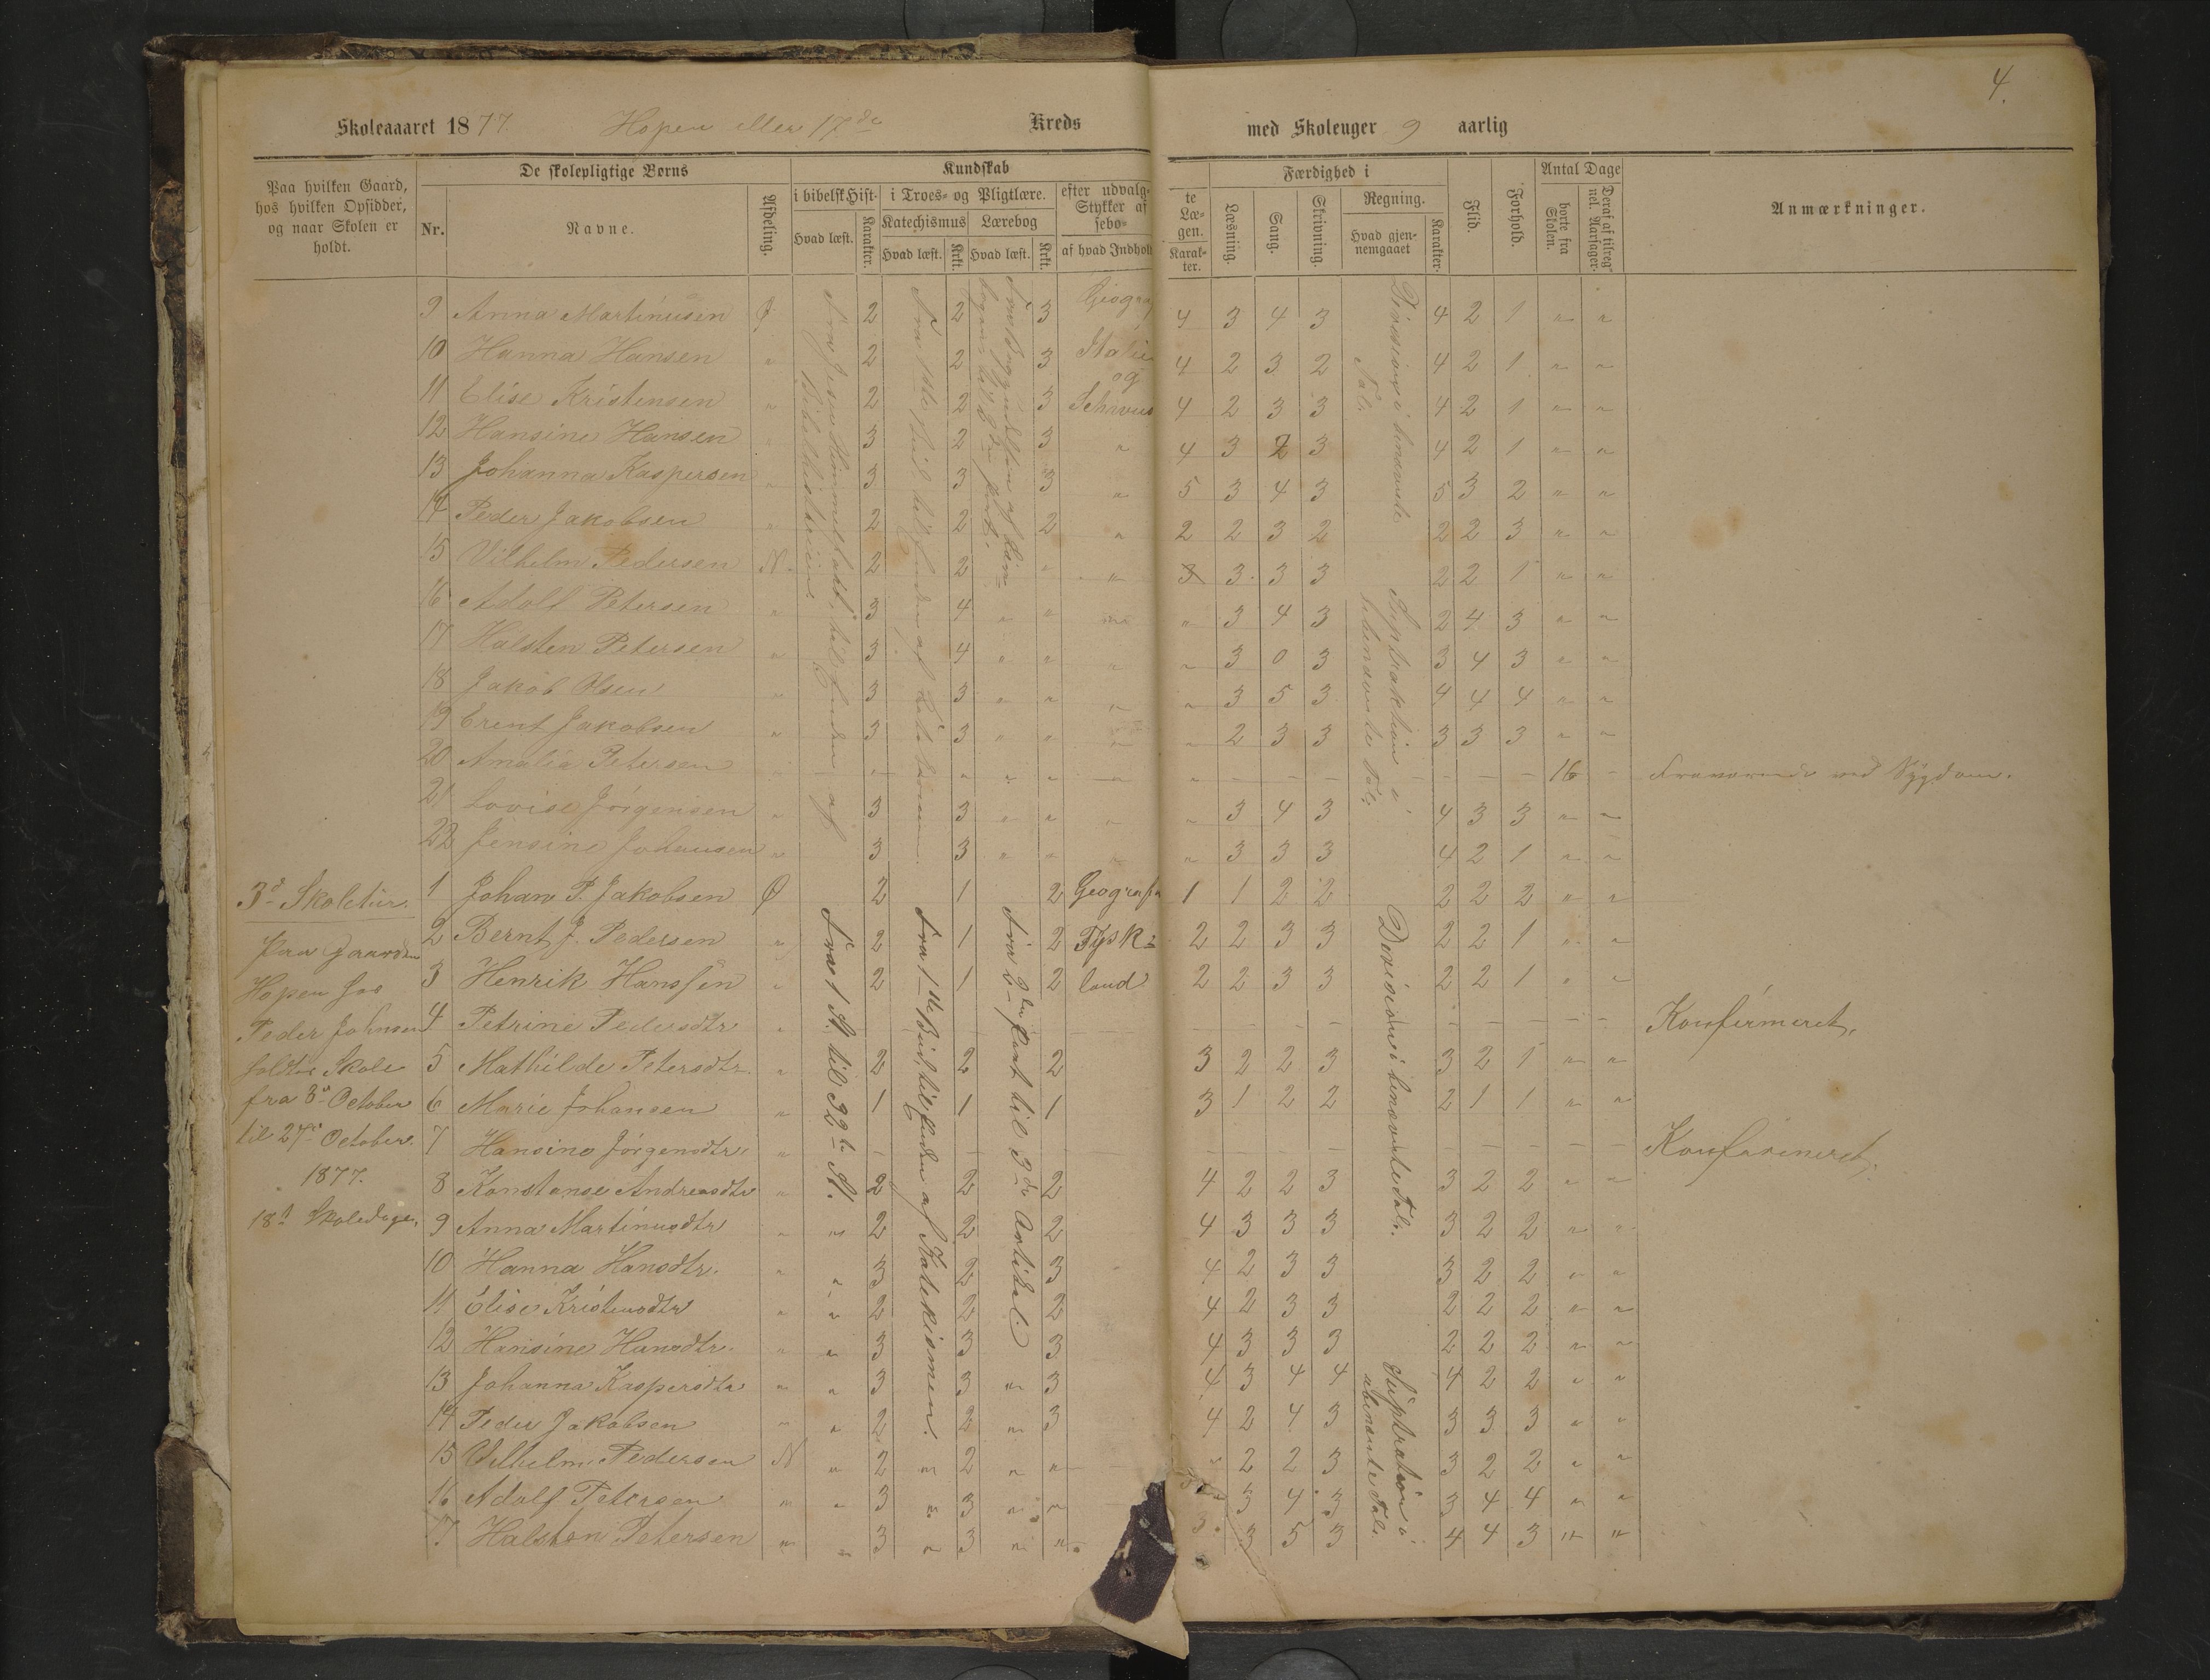 4.
Skoleaaaret 1877 Hopen eller 17de Kreds med Skoleuger 9 aarlig
Paa hvilken Gaard, hos hvilken Opsidder, og naar Skolen er holdt.
De skolepligtige Børns
Nr. Navne. Afdeling.
Kundskab
i bibelsk Hist. i Troes- og Pligtlære. efter udvalg- te
Stykker af Læ-
sebo- gen.
Hvad læst. Karakter. Katechismus Lærebog
Hvad læst. Krkt. Hvad læst. Krkt. af hvad Indhold Karak-ter.
Færdighed i
Læsning. Sang. Skrivning. Regning.
Hvad gjen-nemgaaet Karakter.
Flid. Forhold. Antal Dage
borte fra Skolen. Deraf af tilreg-nel. Aarsager.
Anmærkninger.
9 Anna Martinusen Ø 2 2 3 Geogra 4 3 4 3 4 2 1 " "
10 Hanna Hansen " 2 2 3 Italie 4 2 3 2 4 2 1 " "
og
11 Elise Kristensen " 2 2 3 Schveits 4 2 3 3 4 2 1 " "
12 Hansine Hansen " 3 2 3 " 4 3 2 3 4 2 1 " "
13 Johanna Kaspersen " 3 3 3 " 5 3 4 3 5 3 2 " "
14 Peder Jakobsen " 2 2 2 " 2 2 3 2 2 2 3 " "
15 Vilhelm Pedersen N. 2 2 " " 3 3 3 3 2 2 1 " "
16 Adolf Petersen " 3 4 " " " 3 4 3 2 4 3 " "
17 Halsten Petersen " 3 4 " " " " 3 0 3 3 4 3 " "
18 Jakob Olsen " 3 3 " " " " 3 5 3 4 4 4 " "
19 Erent Jakobsen " 3 3 " " " " 2 3 3 3 3 3 " "
20 Amalia Petersen " 16 Fraværende ved Sygdom.
21 Lovise Jörgensen " 3 3 " " " " 3 4 3 4 3 3 " "
22 Jensine Johansen " 3 3 " " " " 3 3 3 4 2 1 " "
Fra Jesu Himmelfart til Enden af Bibelhistorien
Fra 1ste Bud til Enden af Katekismen.
Fra Begyndelsen af Lærebogen til 2den Part.
Division i benævnte Tal.
Subtraktion i ubenævnte Tal.
3die Skoletur.
Paa Gaarden
Hopen hos
Peder Johnsen
holdtes Skole
fra 3die October
til 27de October.
1877.
18 Skoledage.
1 Johan P. Jakobsen Ø 2 1 2 Geografi 1 1 2 2 2 2 2 " "
2 Bernt J. Pedersen " 2 1 2 Tysk- 2 2 3 3 2 2 1 " "
3 Henrik Hanssen " 2 1 2 land 2 2 3 3 2 2 1 " "
4 Petrine Pedersdtr " Konfirmeret.
5 Mathilde Petersdtr. " 2 2 2 3 2 2 3 3 2 1 " "
6 Marie Johansen " 1 1 1 3 1 2 2 2 1 1 " "
7 Hansine Jörgensdtr. " Konfirmeret.
8 Konstanse Andreasdtr " 2 2 2 4 2 2 3 3 2 2 " "
9 Anna Martinusdtr " " 2 2 2 4 3 3 3 3 2 2 " "
10 Hanna Hansdtr. " " 3 2 3 4 2 3 3 3 2 2 " "
11 Elise Kristensdtr " " 2 2 2 4 2 3 3 2 2 2 " "
12 Hansine Hansdtr. " " 3 3 3 4 3 3 3 2 2 2 " "
13 Johanna Kaspersdtr " " 3 3 " 3 4 3 4 4 4 2 2 " "
14 Peder Jakobsen " " 2 2 " 3 4 2 4 3 3 3 3 " "
15 Vilhelm Pedersen N " 2 " 2 " " " 2 2 3 3 2 2 " "
16 Adolf Petersen " " 3 " 3 " " 3 4 3 3 4 4 " "
17 Halsten Petersen " " 3 " 3 " " 3 5 3 4 4 3 " "
Fra 1 St. til 92de St.
Fra 1ste Bud til Enden af Katekismen.
Fra 2den Part til 3die Artikel.
Devision i benævnte Tal.
Suptration i ubenævnte Tal.